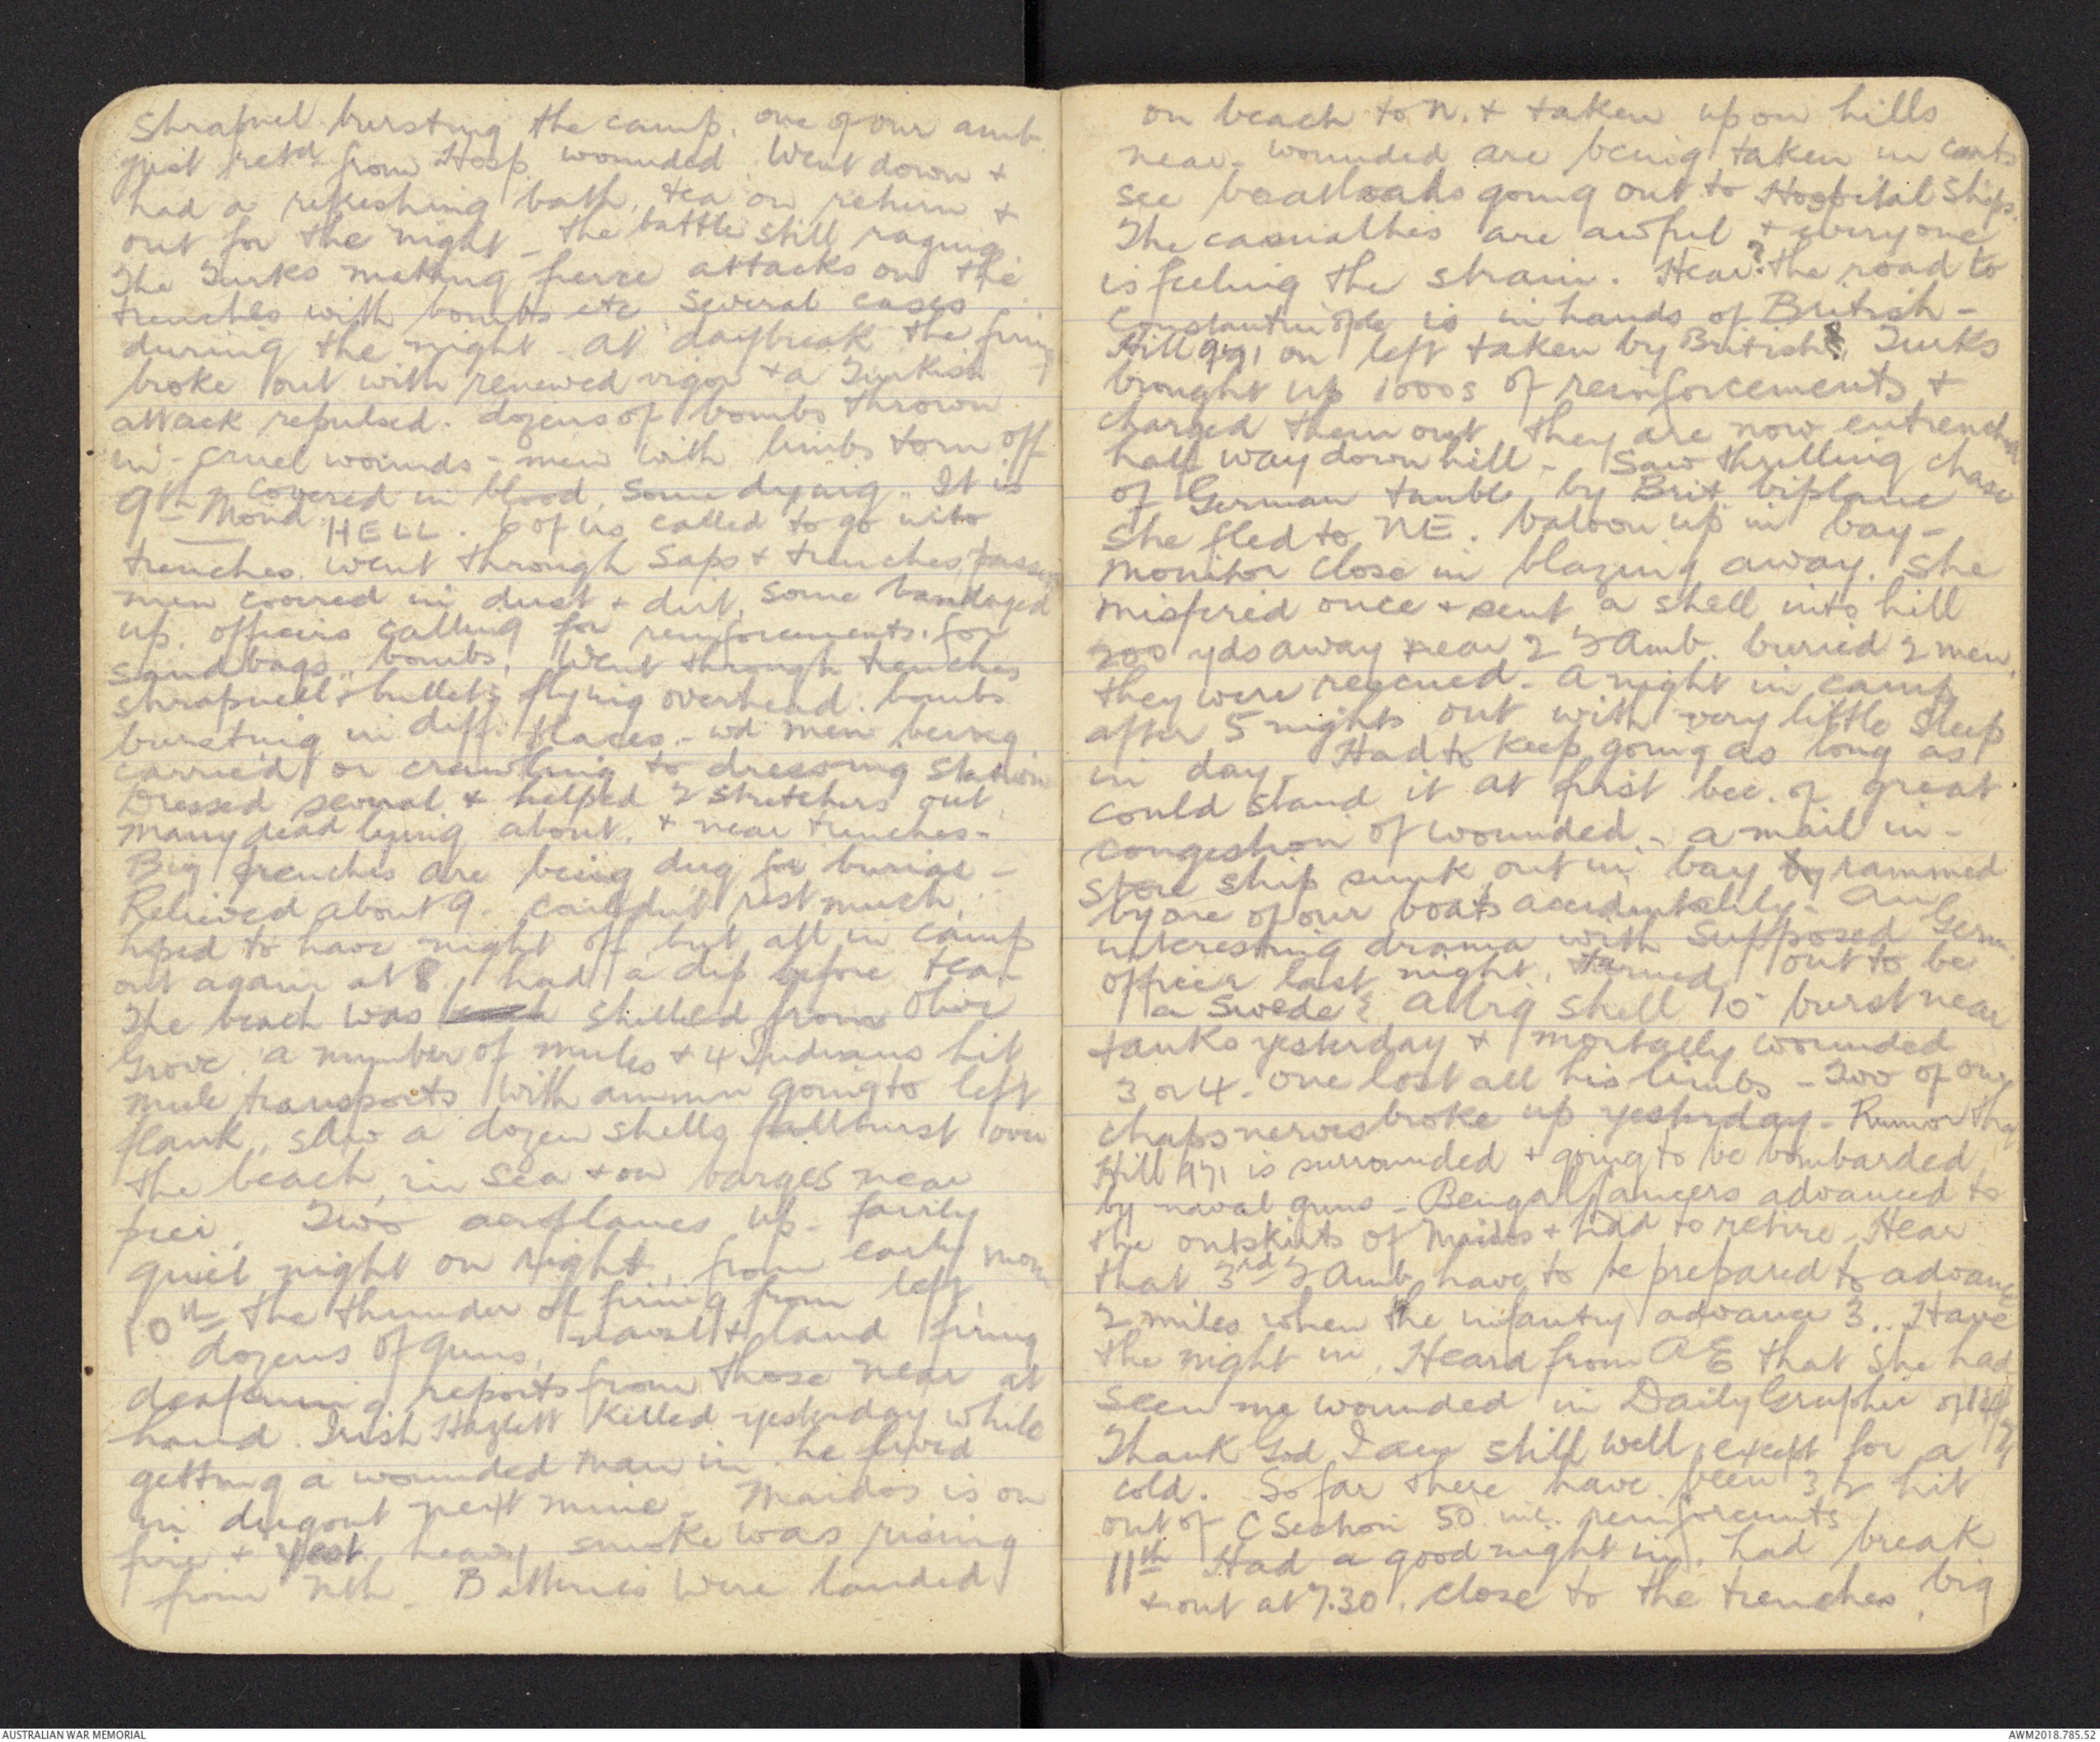 Shrapnel bursting the camp. one of our amb
just retd from Hosp. wounded. Went down +
had a refreshing bath, tea on return +
out for the night - the battle still raging
The Turks making fierce attacks on the
trenches with bombs etc several cases
during the night - at daybreak the firing
broke out with renewed vigor + a Turkish
attack repulsed. dozens of bombs thrown
in - cruel wounds - men with limbs torn off
9th Mond covered in blood, some dying. It is
HELL. 6 of us called to go into
trenches. Went through Saps + trenches, passing
men covered in dust + dirt, some bandaged
up. officers calling for reinforcements. for
sandbags, bombs. Went through trenches
shrapnell + bullets flying overhead. bombs
bursting in diff. places - wd men being
carried or crawling to dressing station
Dressed several + helped 2 stretchers out
many dead lying about, + near trenches -
Big trenches are being dug for burial -
Relieved about 9. couldn't rest much,
hoped to have night off but all in camp
out again at 8. had a dip before tea -
The beach was shelled from Olive
Grove. a number of mules + 4 Indians hit
mule transports with ammn going to left
flank, saw a dozen shells burst over
the beach, in sea + on barges near
pier. Two aeroplanes up - fairly
quiet night on right, from early morn
10th the thunder of firing from left
dozens of guns, naval + land firing
deafening reports from those near at
hand. Irish Hazlett killed yesterday while
getting a wounded man in. he lived
in dugout next mine - Maidos is on
fire + yest. heavy smoke was rising
from Nth - Batteries were landed
on beach to N. + taken up on hills
near - wounded are being taken in carts
see boatloads going out to Hospital Ships.
The casualties are awful + everyone
is feeling the strain. Hear? the road to
Constantinople is in hands of British -
Hill 971 on left taken by British?, Turks
brought up 1000s of reinforcements +
charged them out they are now entrenched
half way down hill - Saw thrilling chase
of German taube by Brit. biplane
she fled to NE. baloon up in bay -
Monitor close in blazing away. She
misfired once + sent a shell into hill
200 yds away near 2 F Amb. buried 2 men.
they were rescued - A night in camp
after 5 nights out with very little sleep
in day. Had to keep going as long as
could stand it at first bec. of great
congestion of wounded - a mail in -
Store ship sunk out in bay by rammed
by one of our boats accidentally - An
interesting drama with supposed Germ.
officer last night, turned out to be
a Swede? A lrg shell 10" burst near
tanks yesterday + mortally wounded
3 or 4 - one lost all his limbs - Two of our
chaps nerves broke up yesterday - Rumor thy
Hill 971 is surrounded + going to be bombarded
by naval guns - Bengal Lancers advanced to
the outskirts of Maidos + had to retire - Hear
that 3rd F Amb. have to be prepared to advance
2 miles when the infantry advance 3. Have
the night in. Heard from AE that she had
seen me wounded in Daily Graphic of 14/7
Thank God I am still well, except for a
cold. So far there have been 32 hit
out of C Section 50 inc. reinforcemts
11th Had a good night in, had break
+ out at 7.30. close to the trenches, big
AUSTRALIAN WAR MEMORIAL
AWM2018.785.52